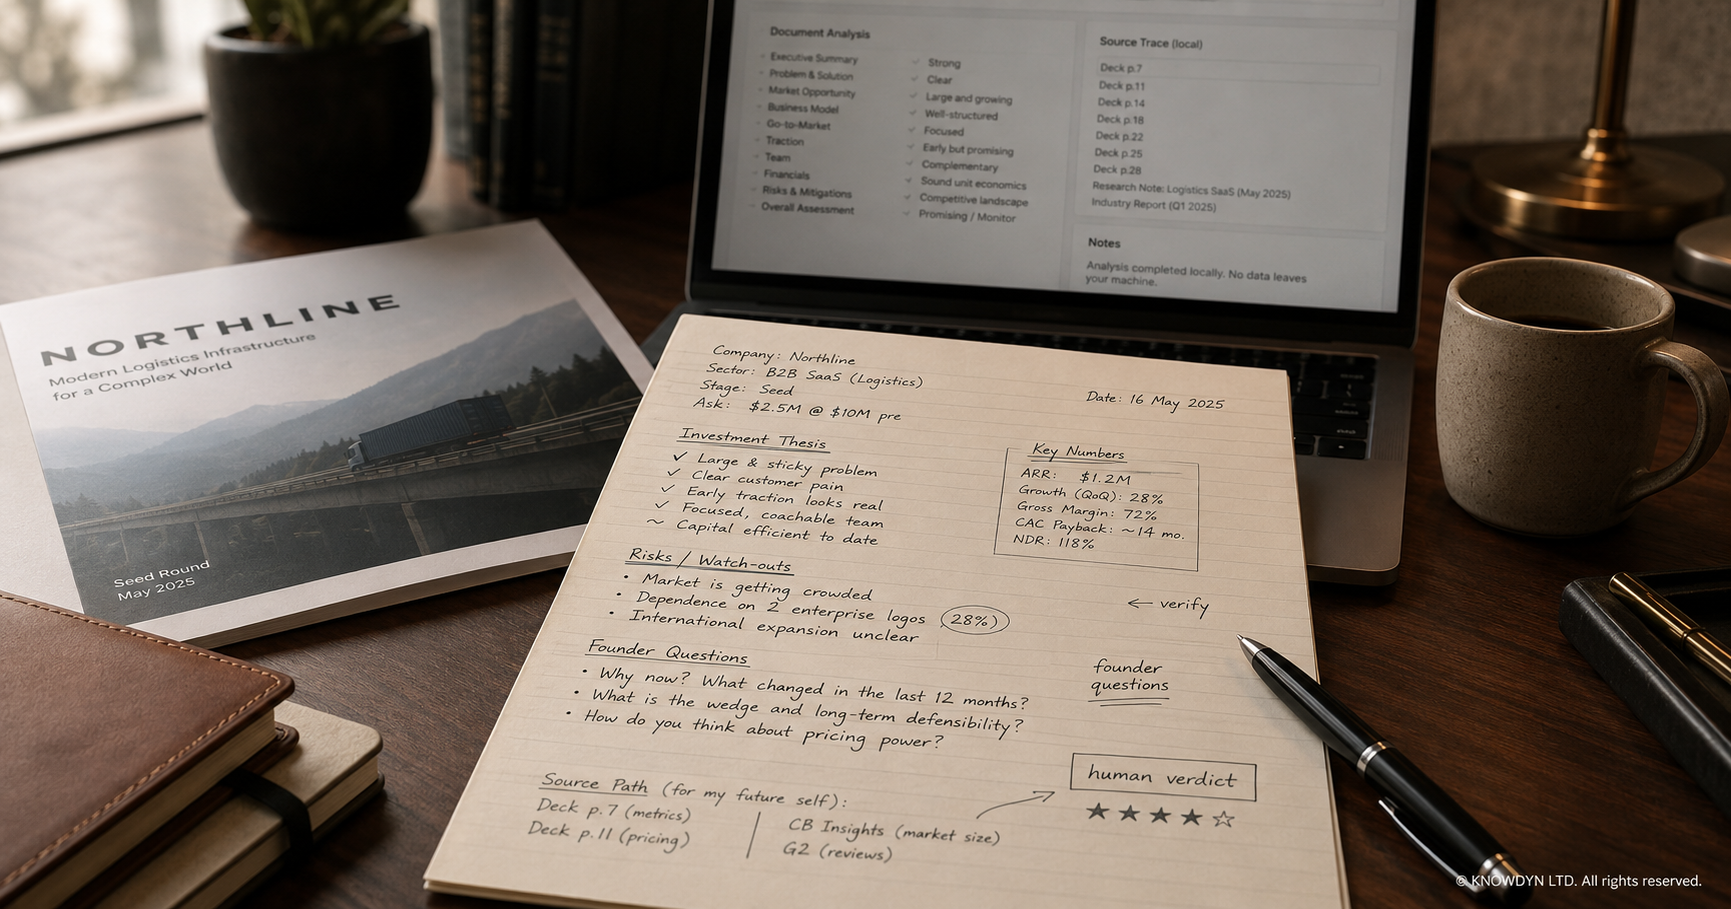 Document Analysis
Executive Summary
Problem & Solution
Market Opportunity
Business Model
Go-to-Market
Traction
Team
Financials
Risks & Mitigations
Overall Assessment
Strong
Clear
Large and growing
Well-structured
Focused
Early but promising
Complementary
Sound unit economics
Competitive landscape
Promising / Monitor
Source Trace (local)
Deck p.7
Deck p.11
Deck p.14
Deck p.18
Deck p.22
Deck p.25
Deck p.28
Research Note: Logistics SaaS (May 2025)
Industry Report (Q1 2025)
Notes
Analysis completed locally. No data leaves
your machine.
NORTHLINE
Modern Logistics Infrastructure
for a Complex World
Seed Round
May 2025
Company: Northline
Sector: B2B SaaS (Logistics)
Stage: Seed
Ask: $2.5M @ $10M pre
Date: 16 May 2025
Investment Thesis
✓ Large & sticky problem
✓ Clear customer pain
✓ Early traction looks real
✓ Focused, coachable team
~ Capital efficient to date
Key Numbers
ARR: $1.2M
Growth (QoQ): 28%
Gross Margin: 72%
CAC Payback: ~14 mo.
NDR: 118%
Risks / Watch-outs
• Market is getting crowded
• Dependence on 2 enterprise logos (28%)
• International expansion unclear
← verify
Founder Questions
• Why now? What changed in the last 12 months?
• What is the wedge and long-term defensibility?
• How do you think about pricing power?
founder
questions
Source Path (for my future self):
Deck p.7 (metrics)
Deck p.11 (pricing)
CB Insights (market size)
G2 (reviews)
human verdict
★★★★☆
© KNOWDYN LTD. All rights reserved.